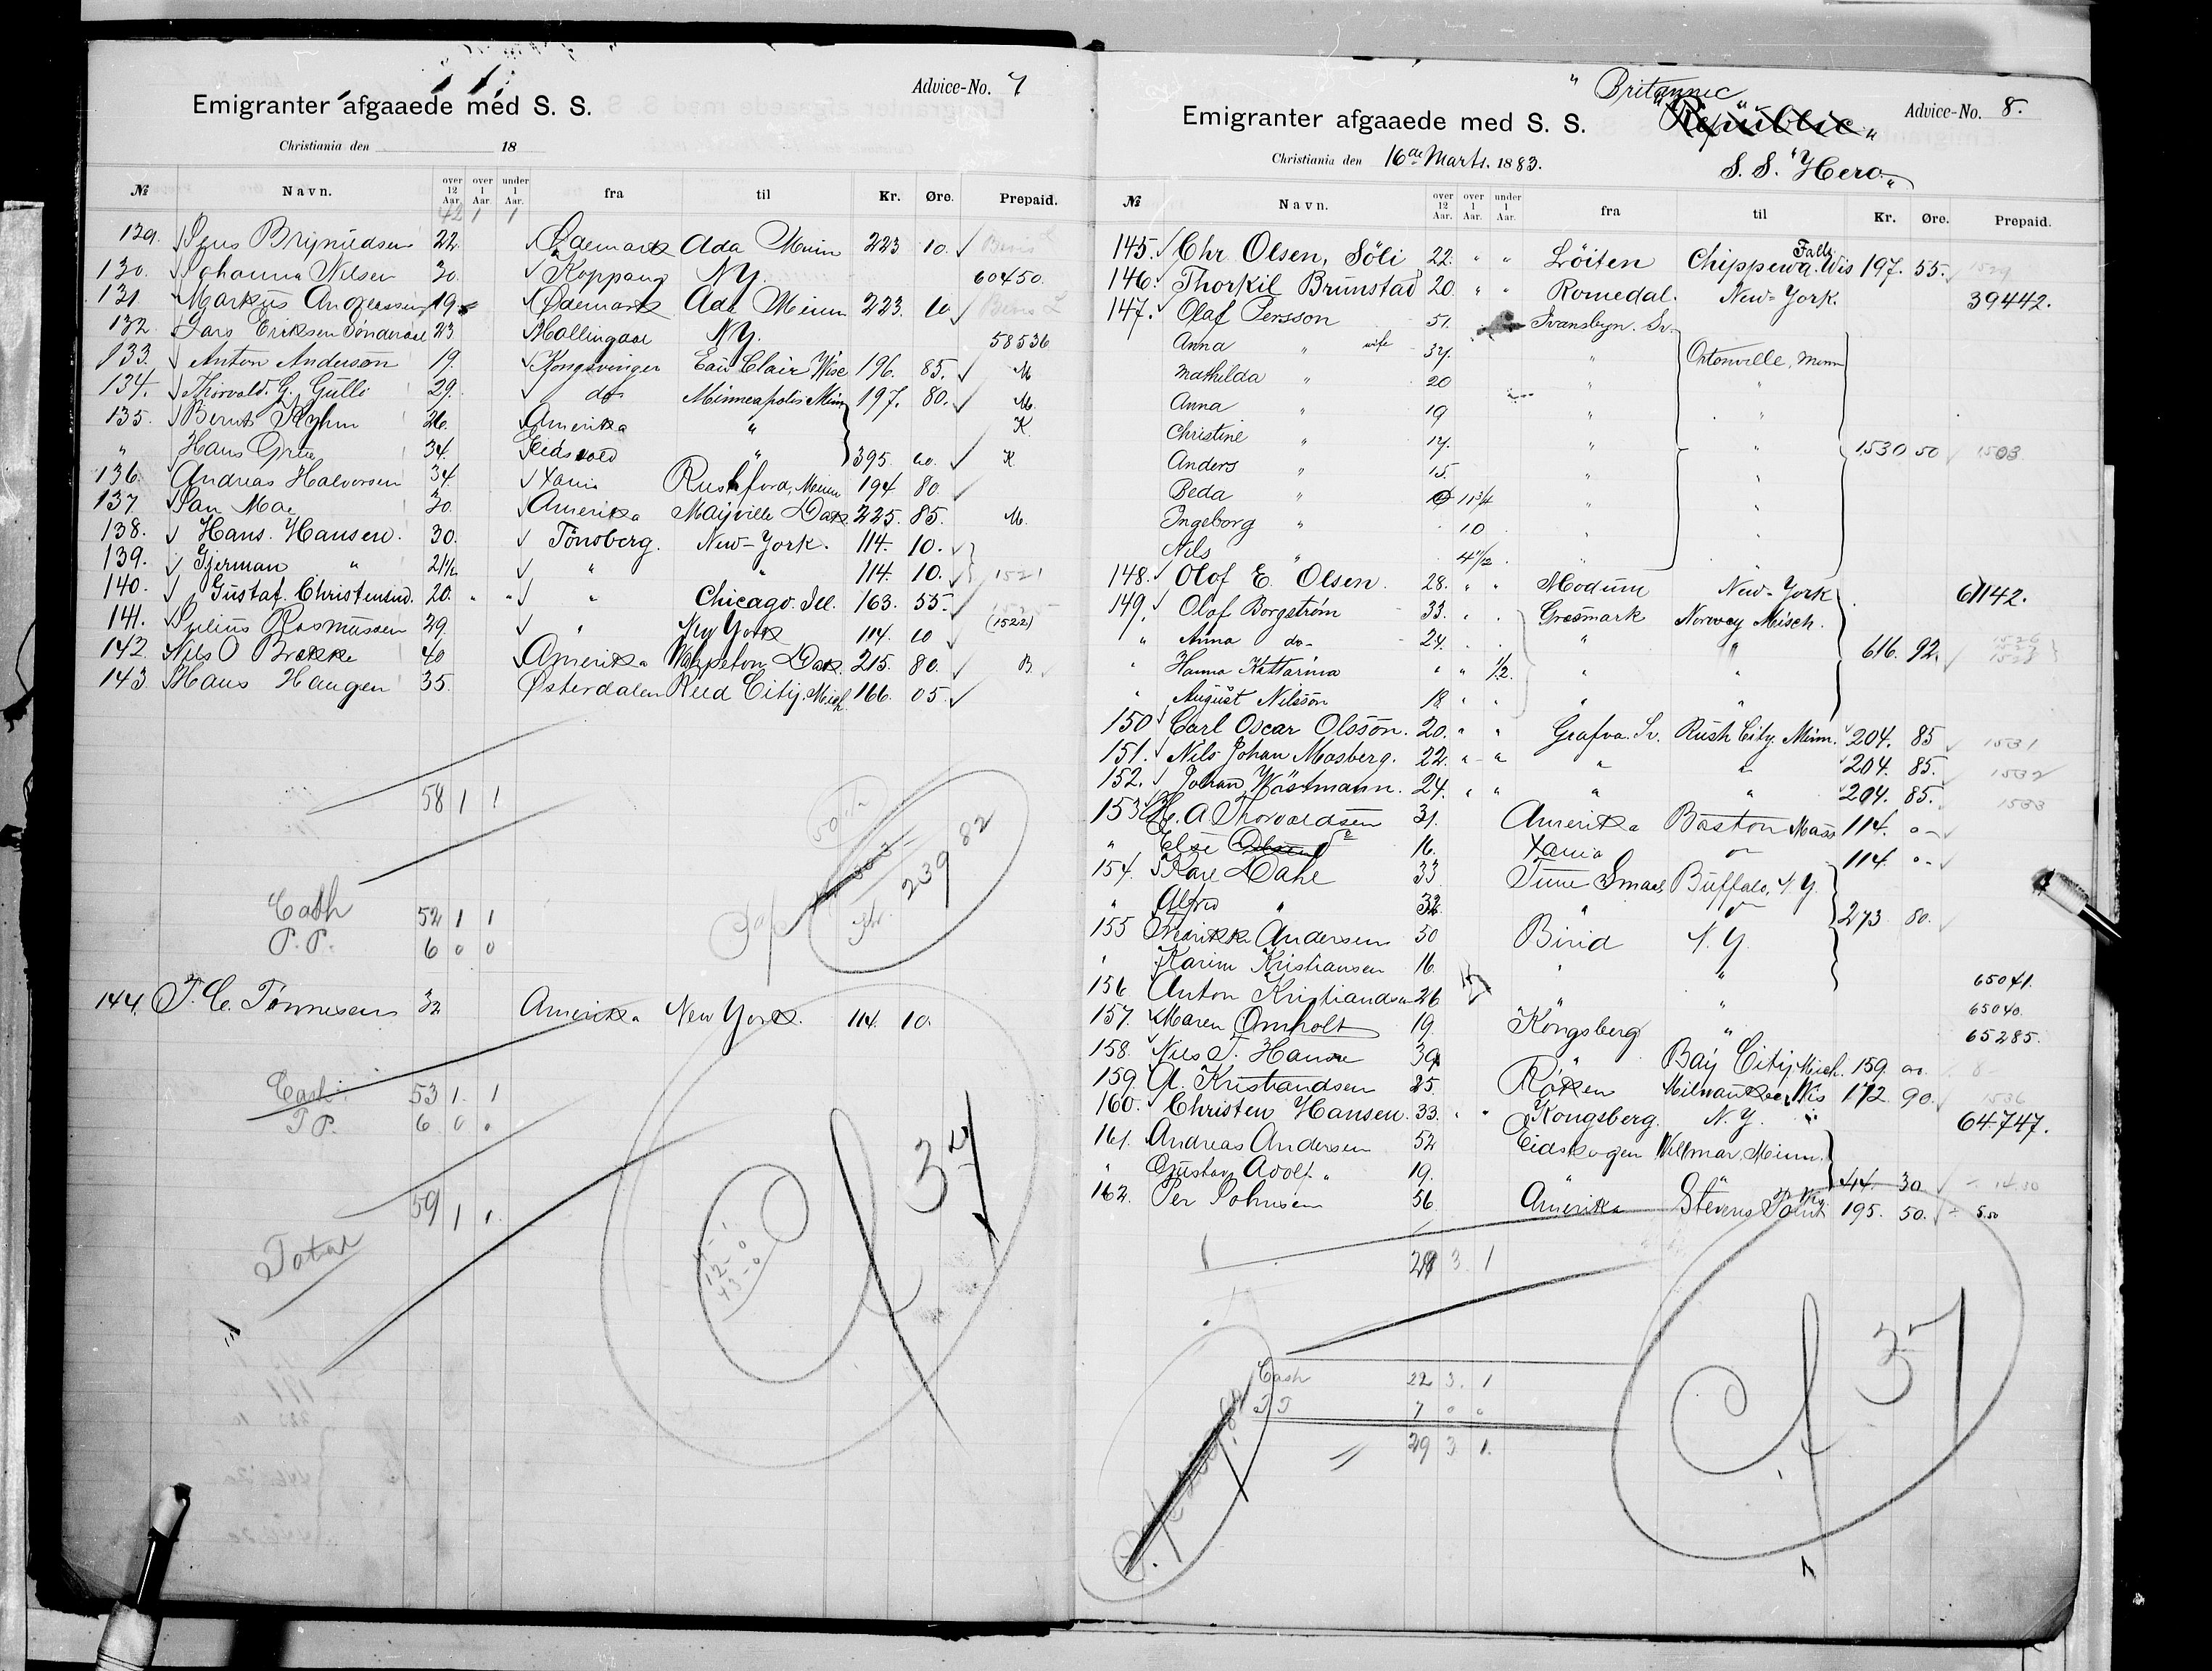 Advice-No. 7
Emigranter afgaaede med S. S.
Christiania den 18
№ Navn. over 12 Aar. over 1 Aar. under 1 Aar. fra til Kr. Øre. Prepaid.
42 1 1
129. Jens Brynildsen 22. Ødemark Ada Minn 223 10.
130. Johanna Nilsen 30. Koppang NY. 60450.
131. Markus 19 Ødemark Ada Minn 223. 10
132. Lars Eriksen Sønderaal 23 NY. 58536
133. Anton Anderson 19. Kongsvinger Eau Clair Wisc 196. 85. M
134. Thorvald G. Gulli 29. do Minneapolis Minn 197. 80. M.
135. Bernt 26. Amerika " K
" Hans 34. Eidsvold " 395. 60. K
136. Andreas Halvorsen 34. Xania Rushford, Minn 194 80.
137 Jan Moe 30. Amerika Mayville Dak 225. 85. M.
138. Hans. Hansen. 30. Tönsberg. New-York. 114. 10.
139. Gjerman " 21½ " " 114. 10. 1521
140. Gustaf. Christensen. 20. " " " Chicago. Ill. 163. 55.
141. Julius Rasmussen 29. " New York 114. 10 (1522)
142 Nils O Brekke 40 Amerika Wahpeton Dak. 215. 80. B.
143 Hans Haugen 35. Østerdalen Reed City. Mich. 166. 05.
58 1 1
239 82
Cash 52 1 1
P.P. 6 0 0
144. T. C. Tönnesen 32 Amerika New York. 114. 10.
Cash 53 1. 1
P P. 6. 0 0
59 1 1.
Total
12 - 0
43 - 0
" Britannic "
Advice-No. 8.
Emigranter afgaaede med S. S. "Republic"
Christiania den 16de Marts. 1883. S. S. "Hero"
№ Navn. over 12 Aar. over 1 Aar. under 1 Aar. fra til Kr. Øre. Prepaid.
145. Chr. Olsen, Söli 22. " " Löiten Chippewa Falls Wis 197. 55.
146. Thorkil Brunstad 20 " " Romedal. New-York. 39442.
147. Olaf Persson 51. Svansbyn. Sv.
Anna " wife 37. " Ortonville, Minn
Mathilda " 20 "
Anna " 19 " "
Christine " 17. " " 1530 50 1503
Anders " 15. " "
Beda " 11¾ " "
Ingeborg " 10 " "
Nils " 4 11/12 "
148. Olof E. Olsen. 28. " " Modum New-York 61142.
149. Olof Borgström 33. " " Grosmark Norway Misch.
" Anna do- 24. " " 616. 92.
" Hanna Kattarina " " ½. " "
" August Nilsson 18. " " " "
150 Carl Oscar Olsson. 20. " " Grafva. Sv. Rush City Minn. 204. 85 1531
151. Nils Johan Mosberg. 22. " " " " 204. 85. 1532
152. Johan Wästmann. 24. " " " " 204. 85. 1533
153 H. A Thorvaldsen 31. Amerika Boston Mass 114. 0-
" Else Olsen 16. Xania 114. 0-
154. Kare Dahl 33 Tune Smaal. Buffalo, N. Y.
" Alfred " 32. " 273 80.
155 Marikke Andersen 50 Birid N. Y.
" Karin Kristiansen 16. " " 65041.
156 Anton Kristiandsen 26 " " 65040.
157. Maren Omholt 19. Kongsberg " 65285.
158. Nils T. Hansen 39 " Bay City Mich. 159. 00.
159. A. Kristiandsen 25. Röken Milwaukee, Wis 172 90. 1536
160. Christen Hansen. 33. " " Kongsberg. N. Y. 64747.
161. Andreas Andersen 52 Eidskogen Willmar, Minn.
" Gustav Adolf. " 19. " " 414. 30
162. Per Johnsen 56. Amerika Stevens Point 195. 50. 5.50
29 3. 1
Cash 22 3. 1
P P 7 0 0
29 3 1.